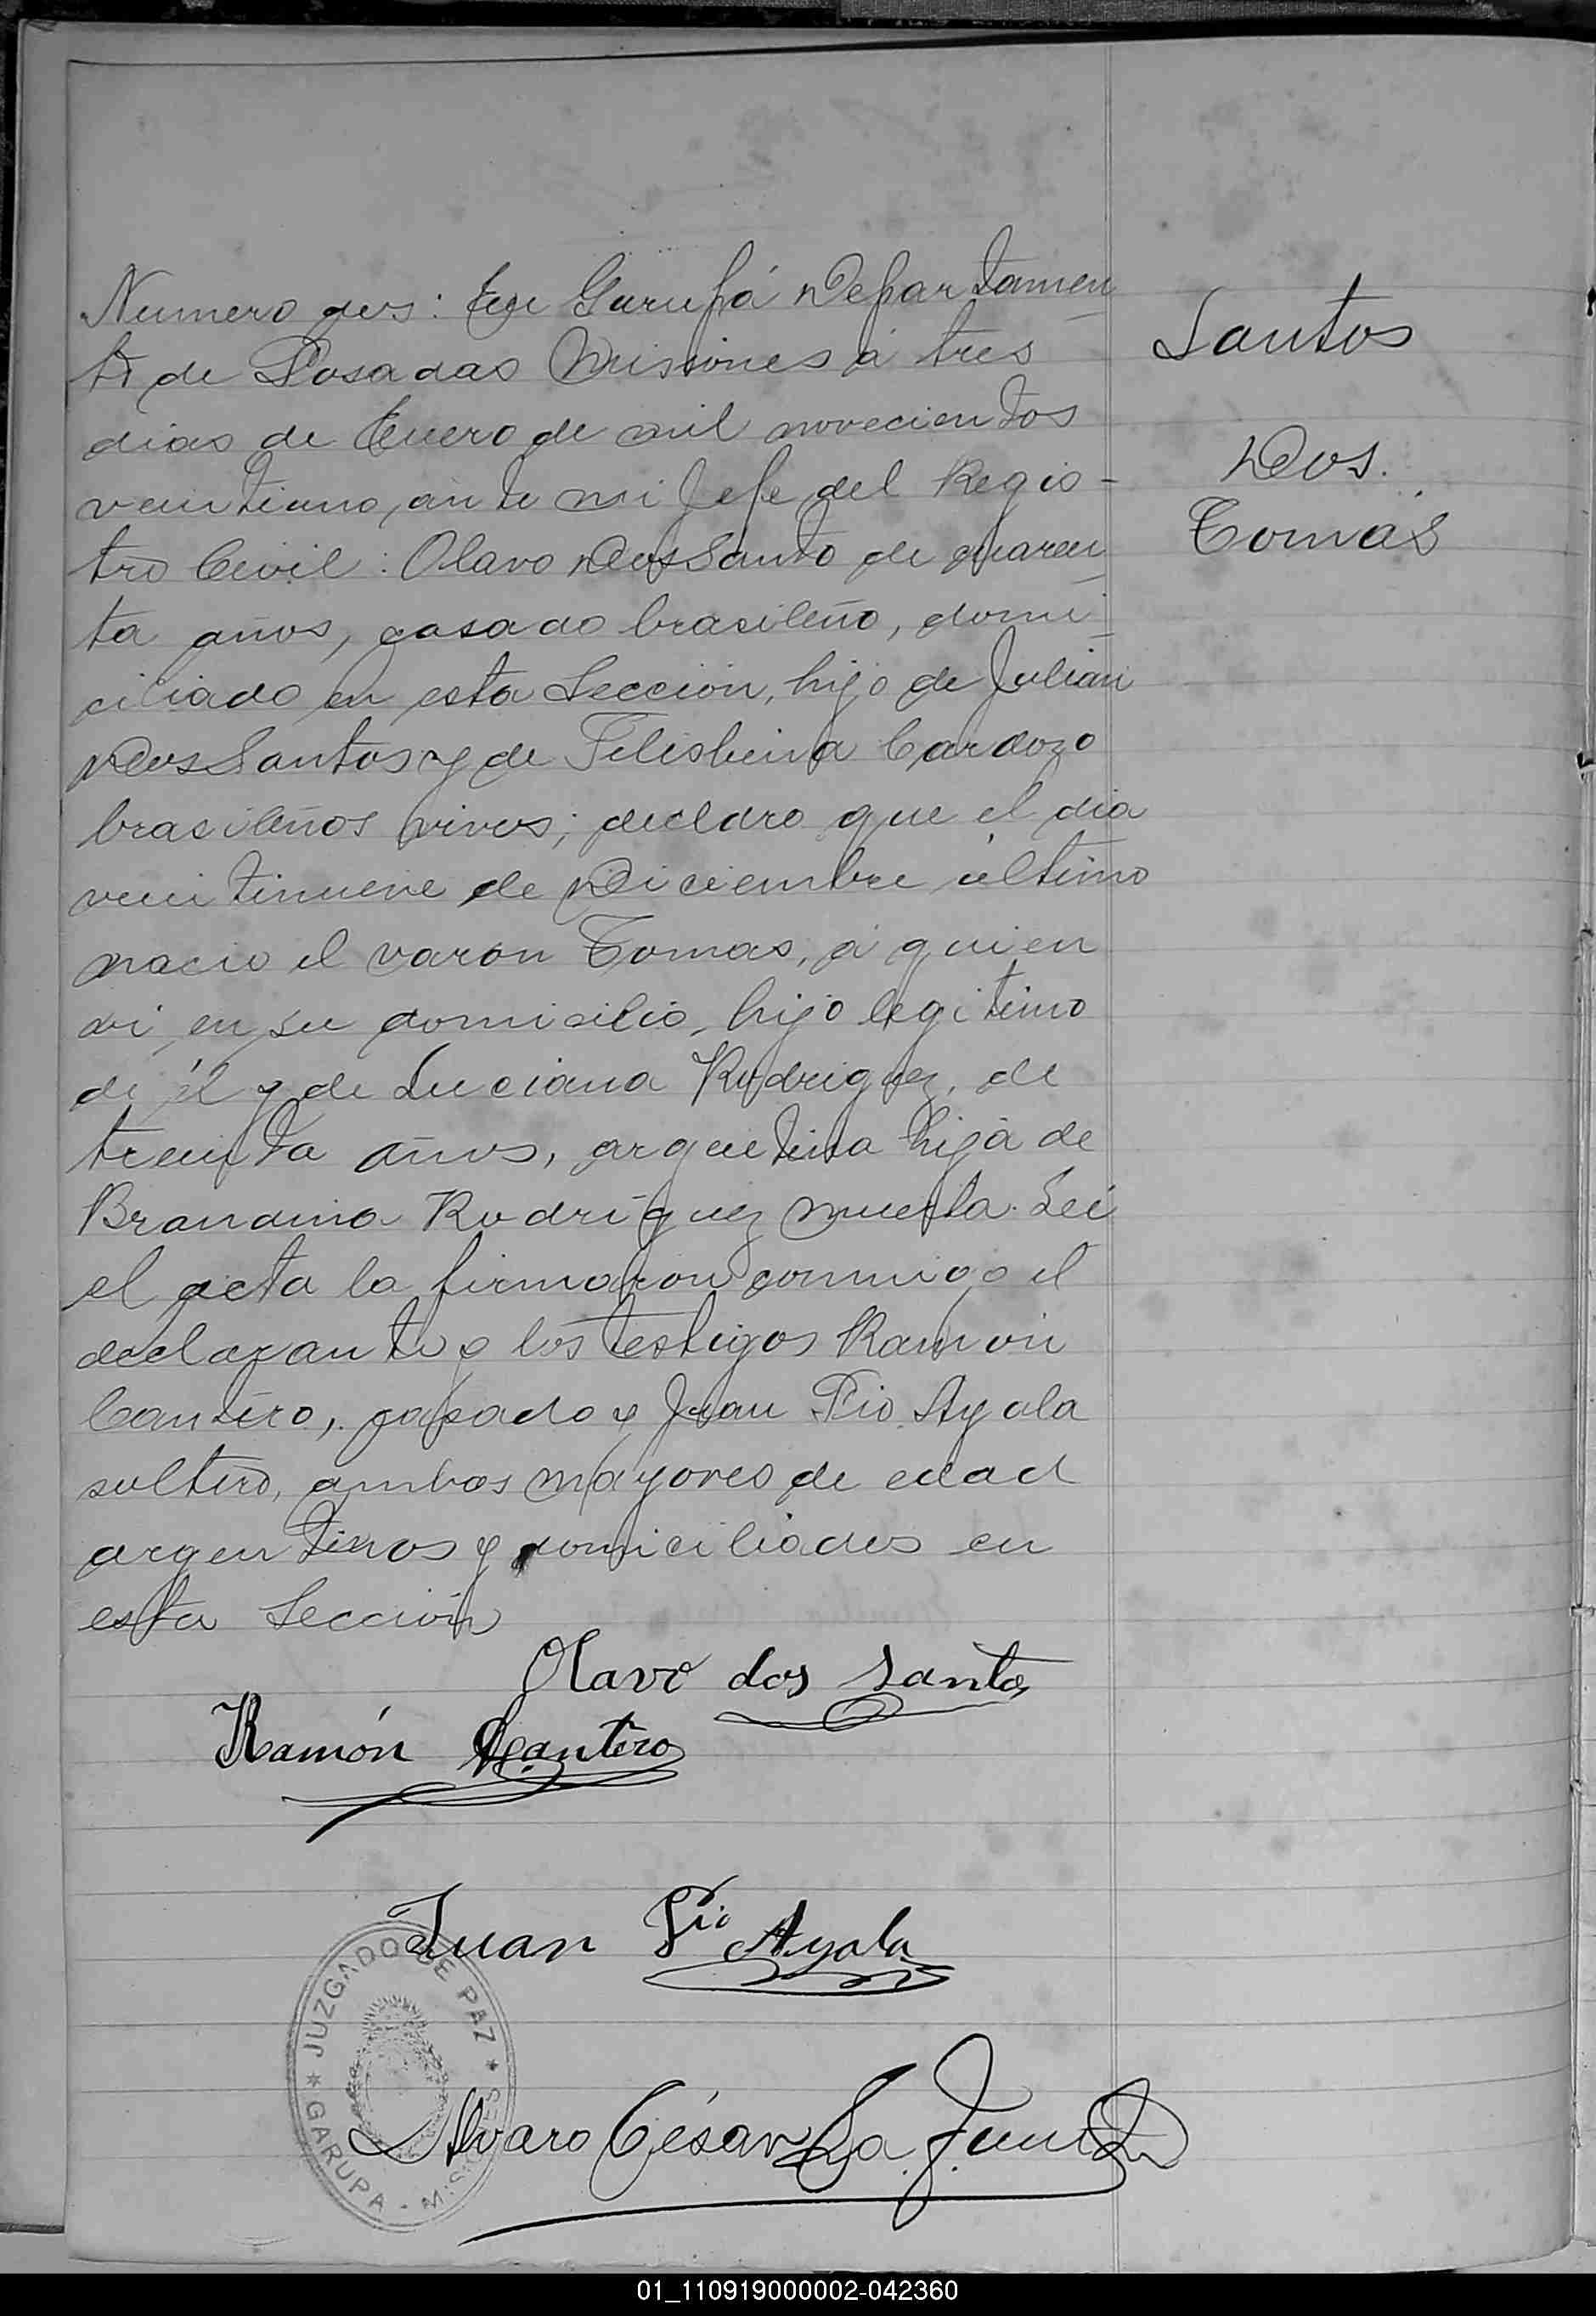 Numero dos: En Garupá Departamen
to de Posadas Misiones á tres
dias de Enero de mil novecientos
veintiuno, ante mi Jefe del Regis-
tro Civil: Olavo Dos Santo de cuaren
ta años, casado brasileño, domi
ciliado en esta Sección, hijo de Julian
Dos Santos y de Felisbina Cardozo
brasileños vivos; declaro que el dia
veintinueve de Diciembre último
nacio el varon Tomas, á quien
vi en su domicilio, hijo legitimo
de él y de Luciana Rodriguez, de
treinta años, argentina hija de
Brandina Rodriguez muerta. Lei
el acta la firmaron conmigo el
declarante y los testigos Ramon
Cantero, casado y Juan Pio Ayala
soltero, ambos mayores de edad
argentinos y domiciliados en
esta Sección
Santos
Dos.
Tomás
Olavo dos Santos
Ramón Cantero
Juan Pio Ayala
JUZGADO DE PAZ * GARUPA - MISIONES *
Alvaro César La
01_110919000002-042360